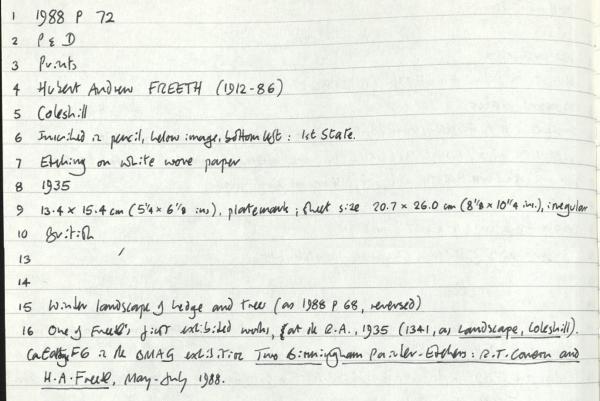 1 1988 P 72
2 P & D
3 Prints
4 Hubert Andrew FREETH (1912-86)
5 Coleshill
6 Inscribed in pencil, below image, bottom left: 1st State.
7 Etching on white wove paper
8 1935
9 13.4 x 15.4 cm (5 1/4 x 6 1/8 ins), platemark; sheet size 20.7 x 26.0 cm (8 1/8 x 10 1/4 ins.), irregular
10 British
13
14
15 Winter landscape of hedge and trees (as 1988 P 68, reversed)
16 One of Freeth's first exhibited works, at the R.A., 1935 (1341, as Landscape, Coleshill).
F6 in the BMAG exhibition Two Birmingham Painter-Etchers: R.T. Cowern and
H.A. Freeth, May-July 1988.